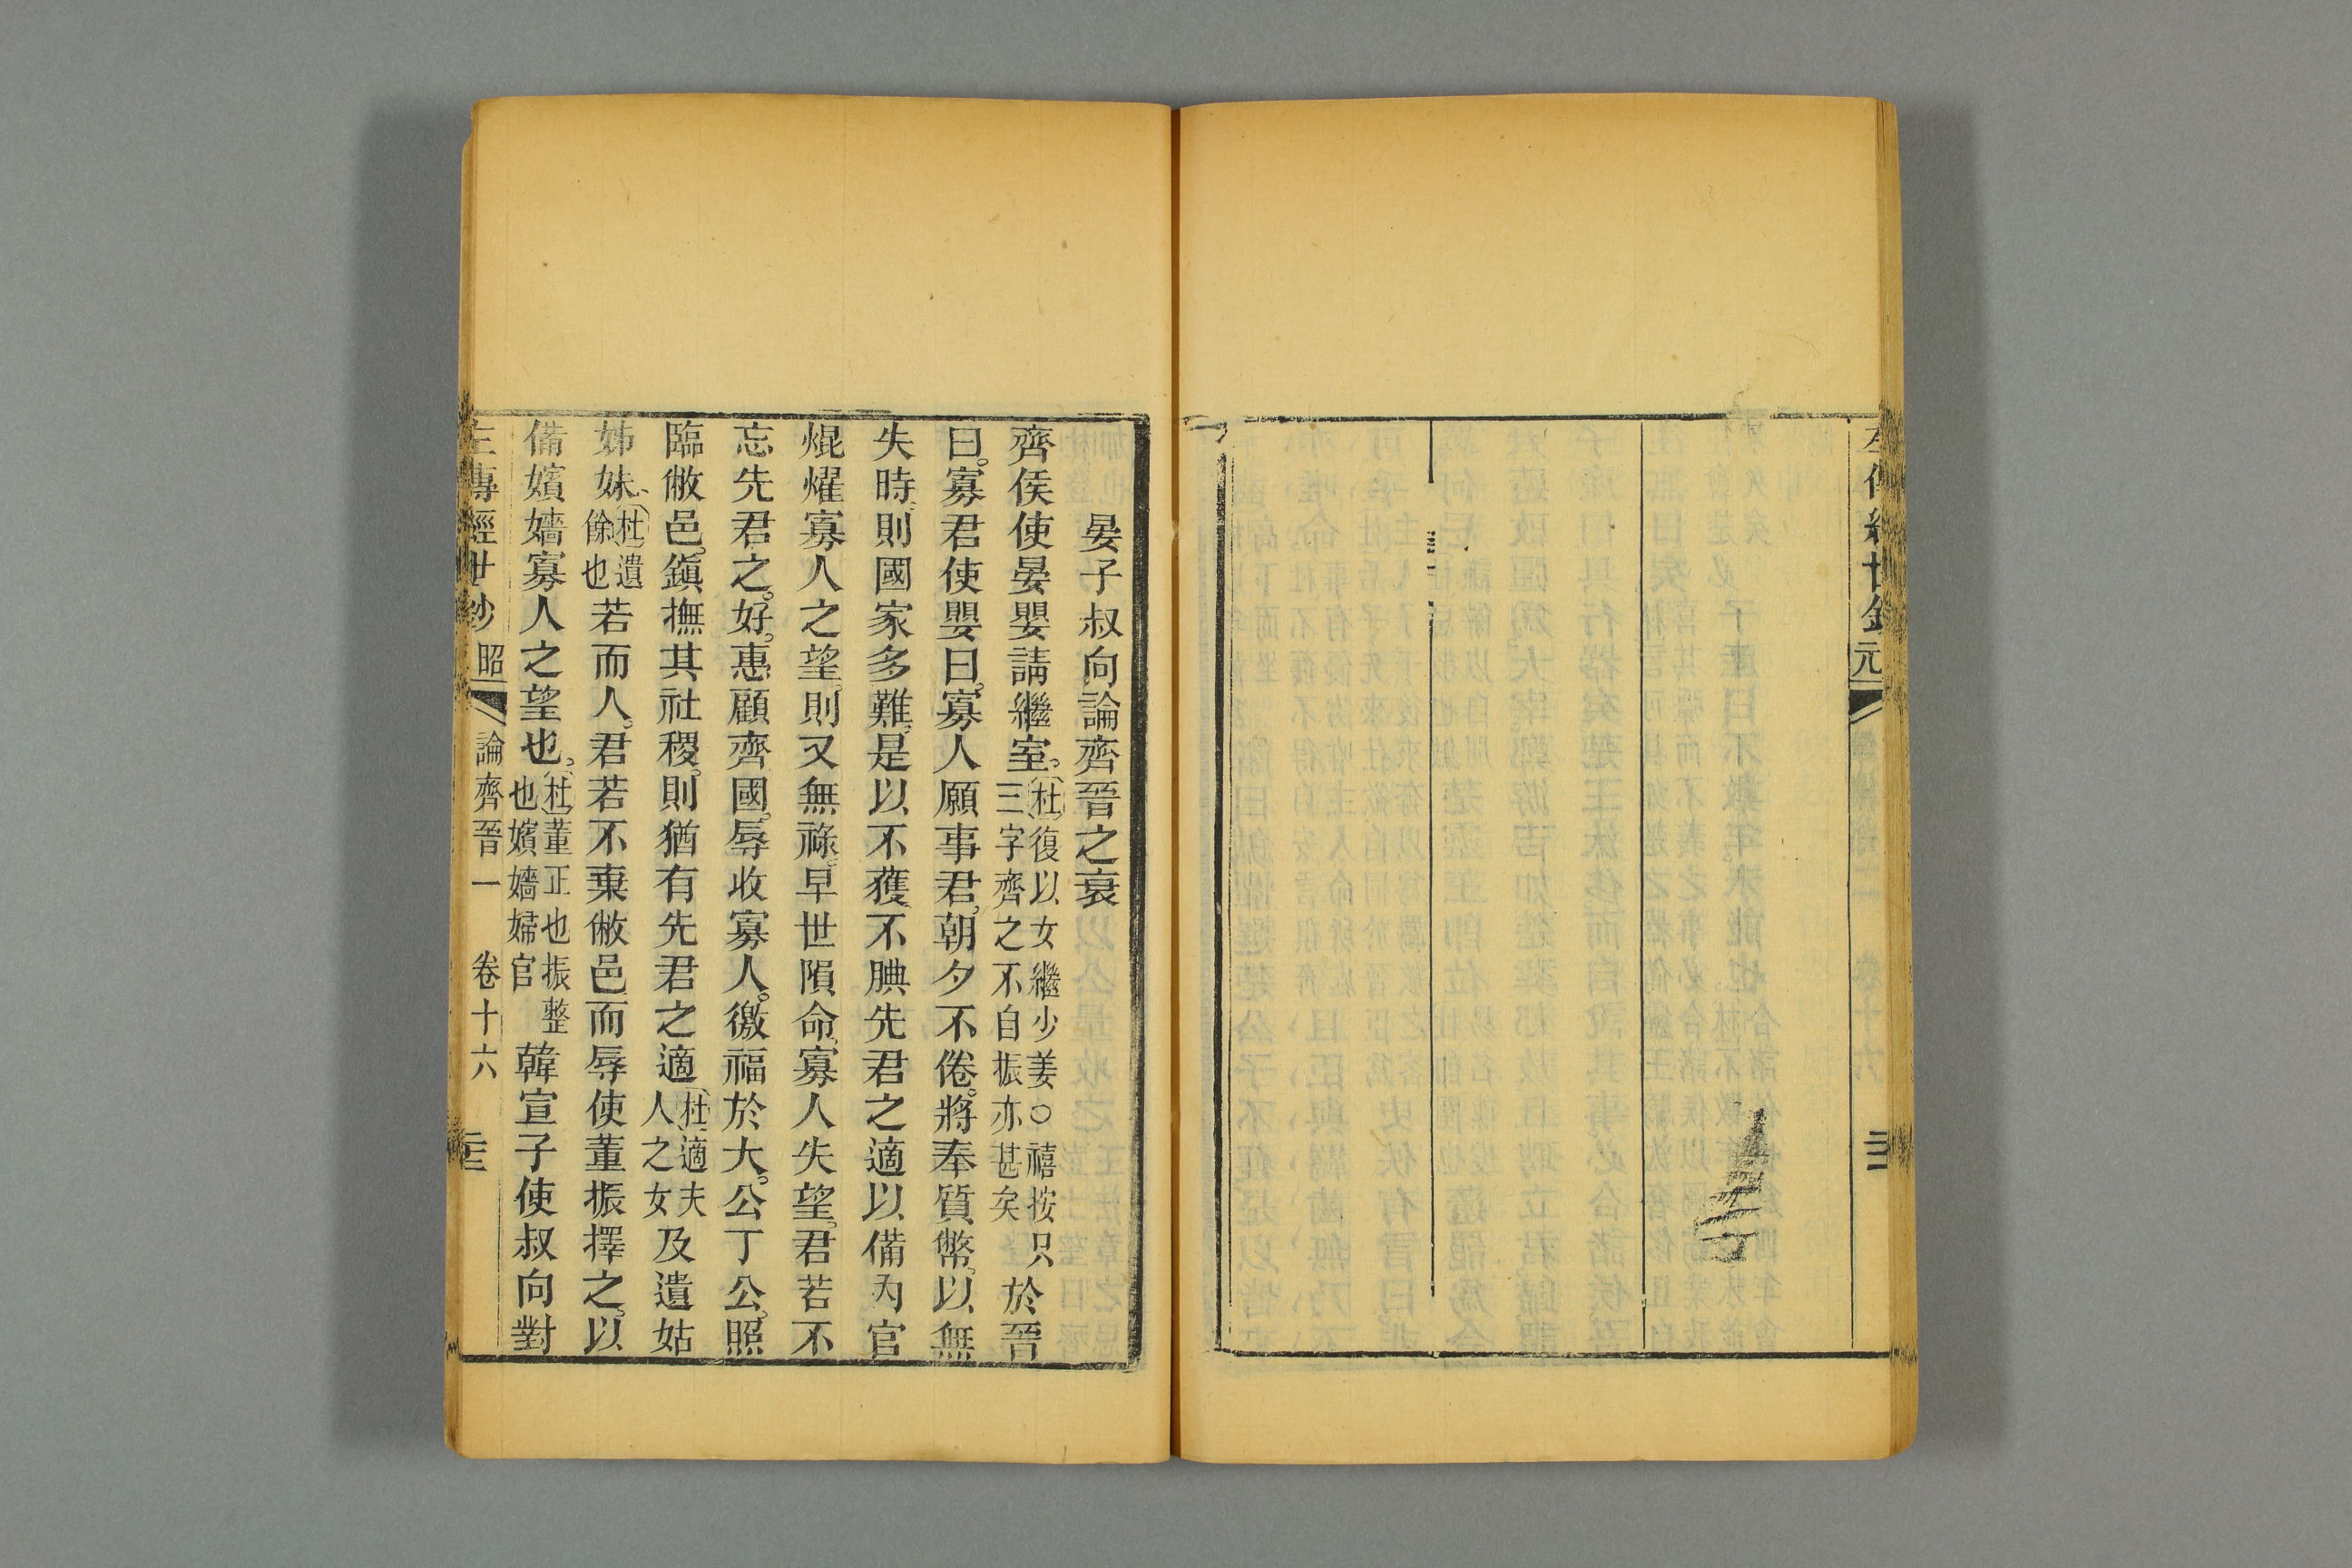 左傳經世鈔 元
晏子叔向論齊晉之衰
齊侯使晏嬰請繼室。杜復以女繼少姜○禧按只三字齊之不自振亦甚矣於晉
曰。寡君使嬰曰。寡人願事君。朝夕不倦。將奉質幣。以無
失時。則國家多難。是以不獲。不腆先君之適以備內官
焜燿寡人之望。則又無祿。早世隕命。寡人失望。君若不
忘先君之。好。惠顧齊國。辱收寡人。徼福於大。公丁公。照
臨敝邑。鎮撫其社稷。則猶有先君之適杜適夫人之女及遺姑
姊妹、杜遺餘也若而人。君若不棄敝邑而辱使董振擇之。以
備嬪嬙寡人之望也。杜董正也振整也嬪嬙婦官韓宣子使叔向對
左傳經世鈔 昭 論齊晉一 卷十六